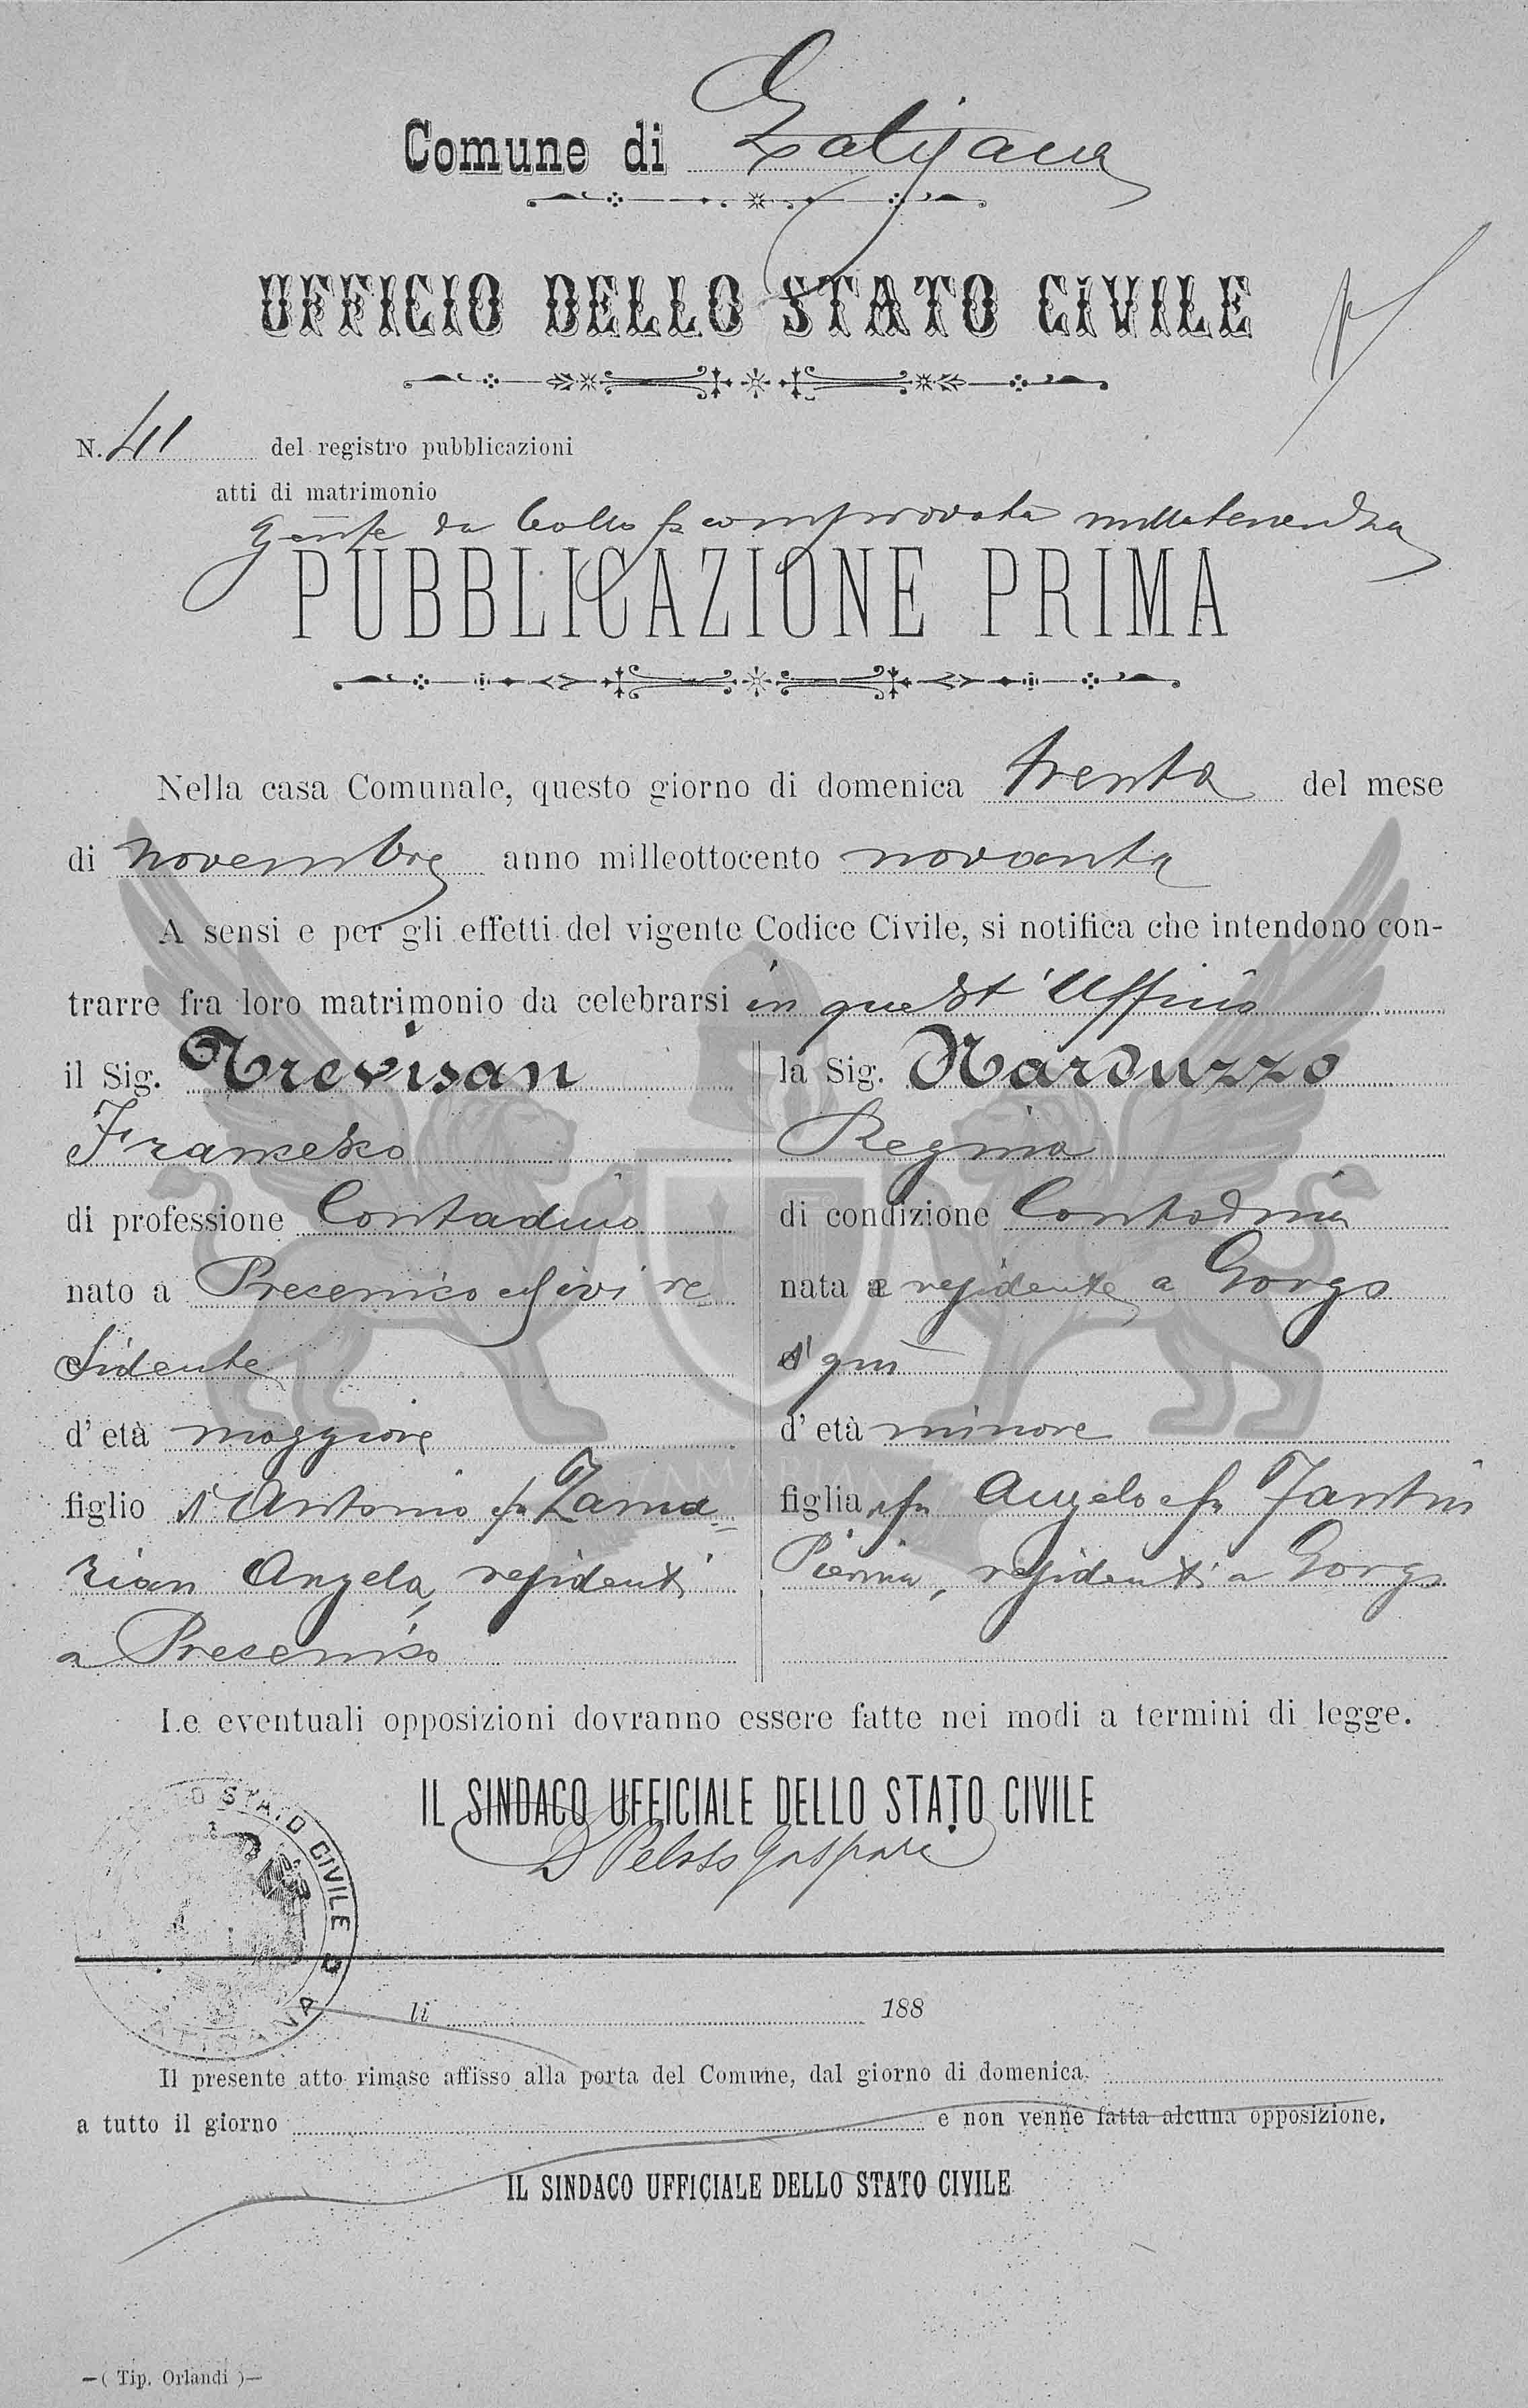 Comune di Latisana
UFFICIO DELLO STATO CIVILE
N. 41 del registro pubblicazioni
atti di matrimonio
da bollo comprovata nullatenenza
PUBBLICAZIONE PRIMA
Nella casa Comunale, questo giorno di domenica trenta del mese
di novembre anno milleottocento novanta
A sensi e per gli effetti del vigente Codice Civile, si notifica che intendono con-
trarre fra loro matrimonio da celebrarsi in quest'Ufficio
il Sig. Trevisan
Francesco
di professione Contadino
nato a Precenico ed ivi re
sidente
d' età maggiore
figlio d'Antonio e fu Zama=
rian Angela, residenti
a Precenico
la Sig. Narduzzo
Regina
di condizione Contadina
nata e residente a Gorgo
d' età minore
figlia fu Angelo e fu Fantin
Pierina, residenti a Gorgo
Le eventuali opposizioni dovranno essere fatte nei modi a termini di legge.
IL SINDACO UFFICIALE DELLO STATO CIVILE
D Peloso Gaspare
STATO CIVILE D
LATISANA
li 188
Il presente atto rimase affisso alla porta del Comune, dal giorno di domenica
a tutto il giorno e non venne fatta alcuna opposizione.
IL SINDACO UFFICIALE DELLO STATO CIVILE
—( Tip. Orlandi )—